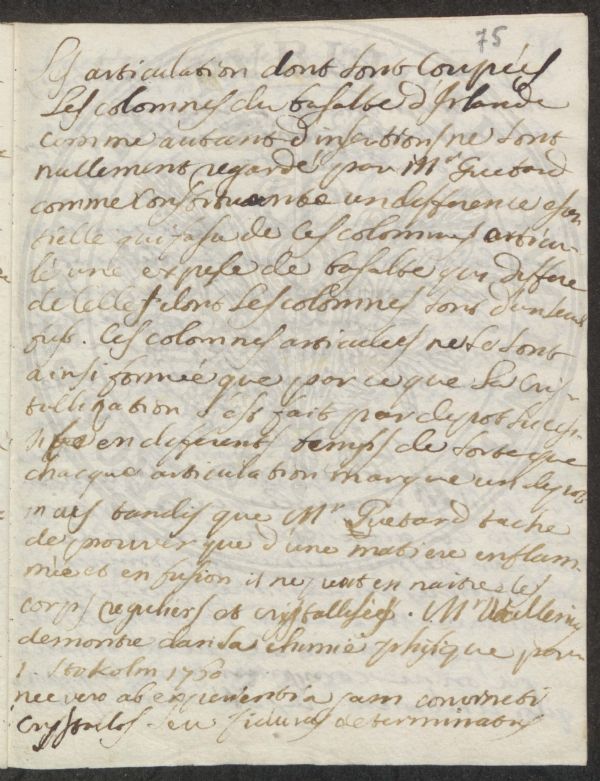 75
les articulation dont sont Coupées
Les colomnes du basalte d'Irlande
comme autant d'insections ne sont
nullement regardé par Mr Guetard
comme Constituante un difference esen
tielle qui fasse de ces colomnes articu
lé une espese de basalte qui differe
de celles dont Les colomnes sont d'un seul
. Ces colomnes articulees ne se sont
ainsi formée que par ce que La cris
tallization s'est fait par depot succes
sive en different temps de sorte que
chacque articulation marque un depot
mais tandis que Mr Guetard tache
de prouver que d'une matiere enflam
mée et en fusion il ne peut en naitre les
corps reguliers et crystallisés . Mr Wallerius
demontre dans sa chimie physique
1. Stokolm 1760
nec vero ab experientia jam convincti
Crystallos seu figuras determinatas